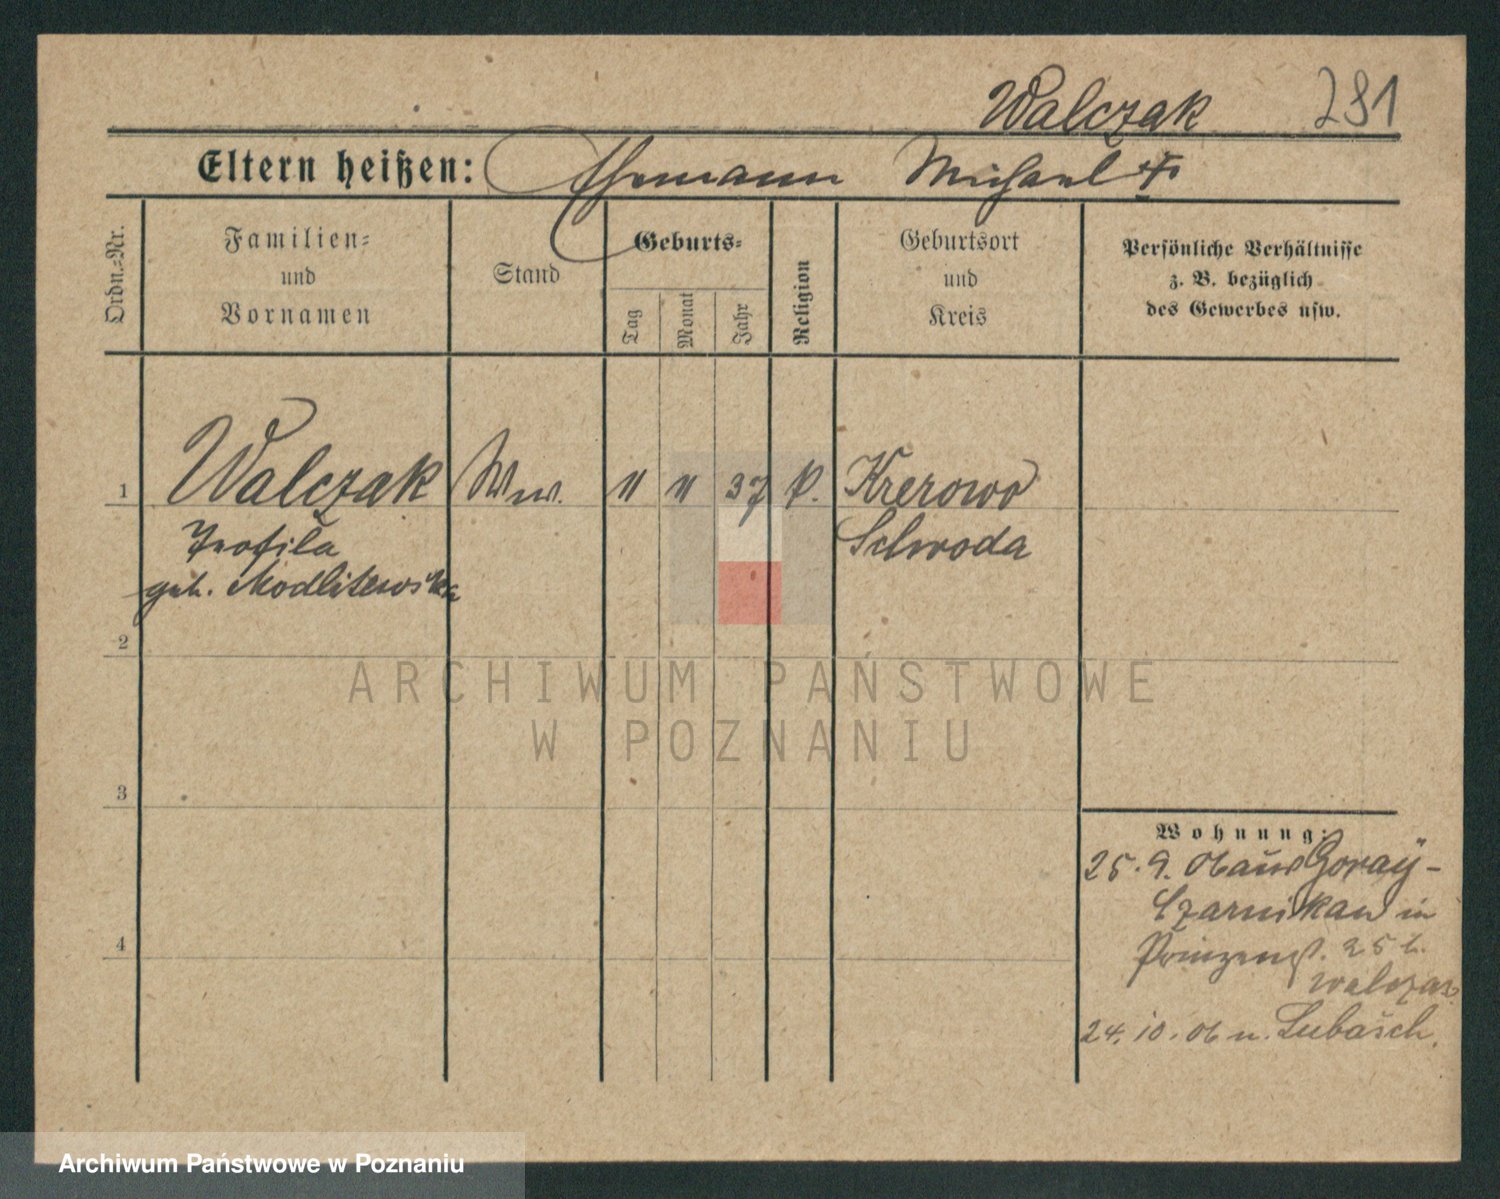 Walczak 281
Eltern heißen: Ehemann Michael
Ordn.=Nr.
Familien=
und
Vornamen
Stand
Geburts=
Tag
Monat
Jahr
Religion
Geburtsort
und
Kreis
Persönliche Verhältnisse
z. B. bezüglich
des Gewerbes usw.
1 Walczak Ww. " " 37 k. Krerowo
Teofila Schroda
geb. Modlitewska
2
ARCHIWUM PAŃSTWOWE
W POZNANIU
3
Wohnung:
25. 9. 06 aus Goray-
Czarnikau in
4
Prinzenst. 25 b.
Walczak
24. 10. 06 n. Lubasch.
Archiwum Państwowe w Poznaniu